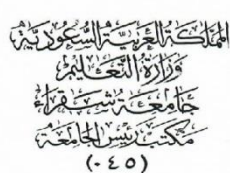 المملكة العربية السعودية
وزارة التعليم
جامعة شقراء
مكتب رئيس الجامعة
(٠٤٥)